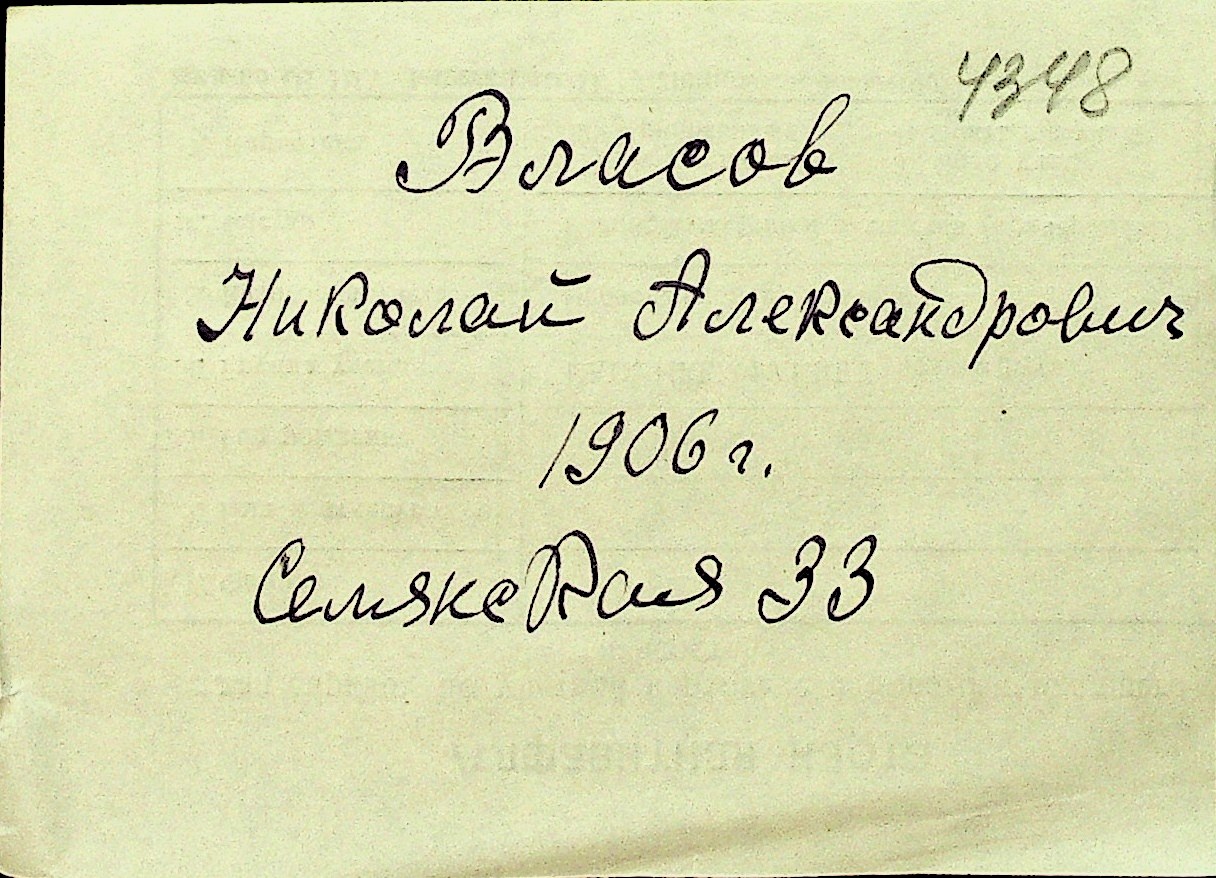 4348
Власов
Николай Александрович
1906 г.
Семякская 33